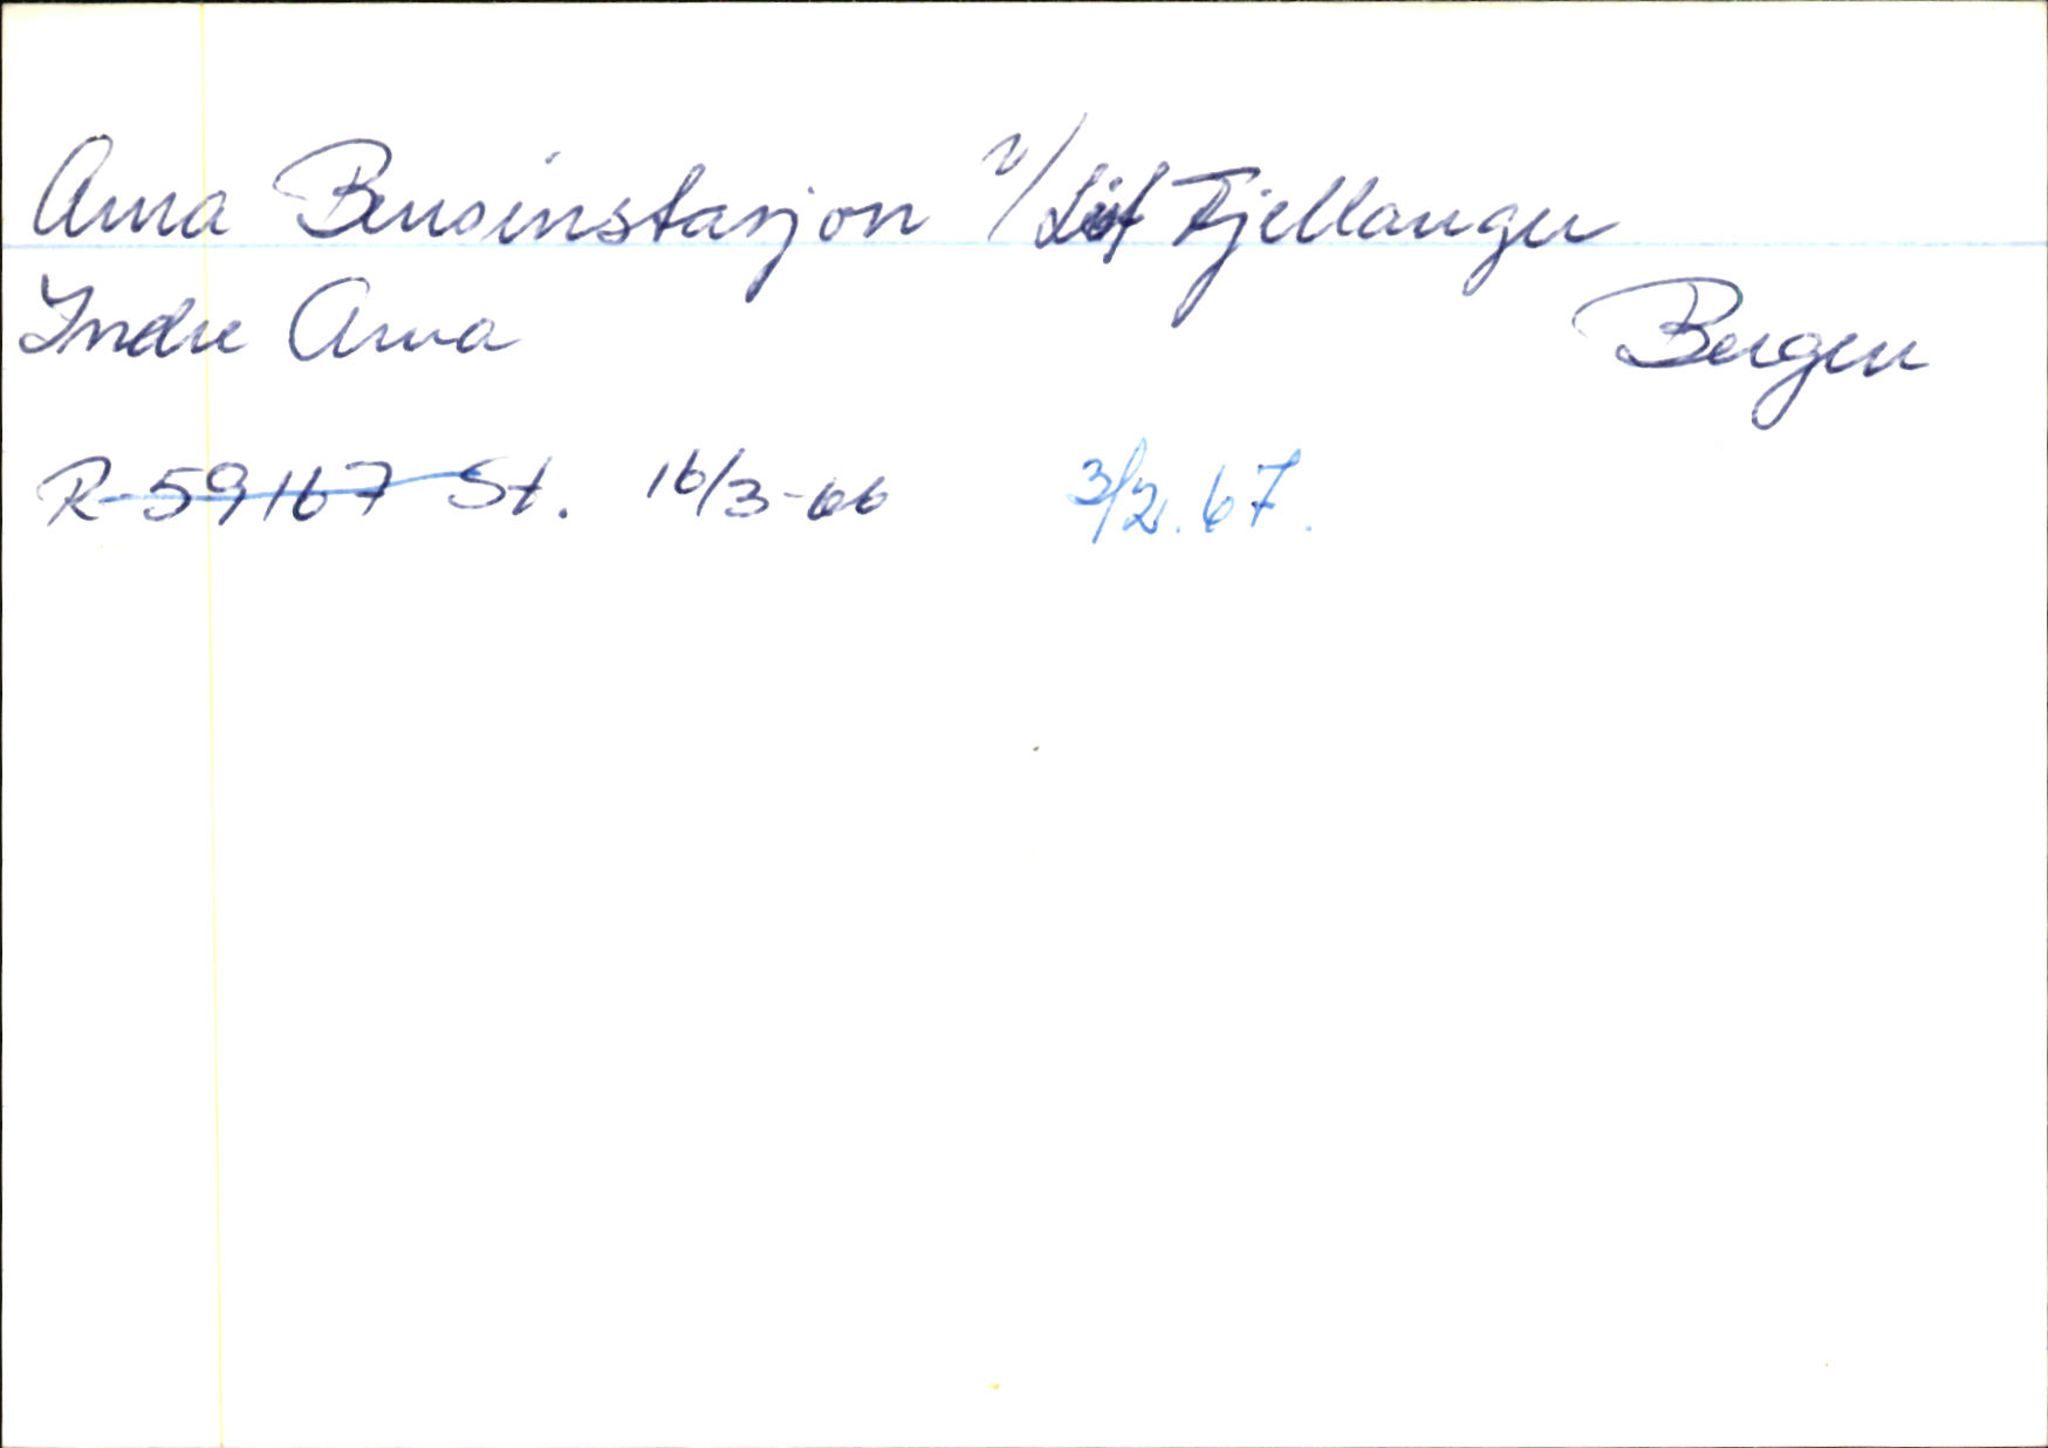 Arna Bensinstasjon v/Leif Fjellanger
Indre Arna Bergen
R-59167 St. 16/3-66 3/2.67.